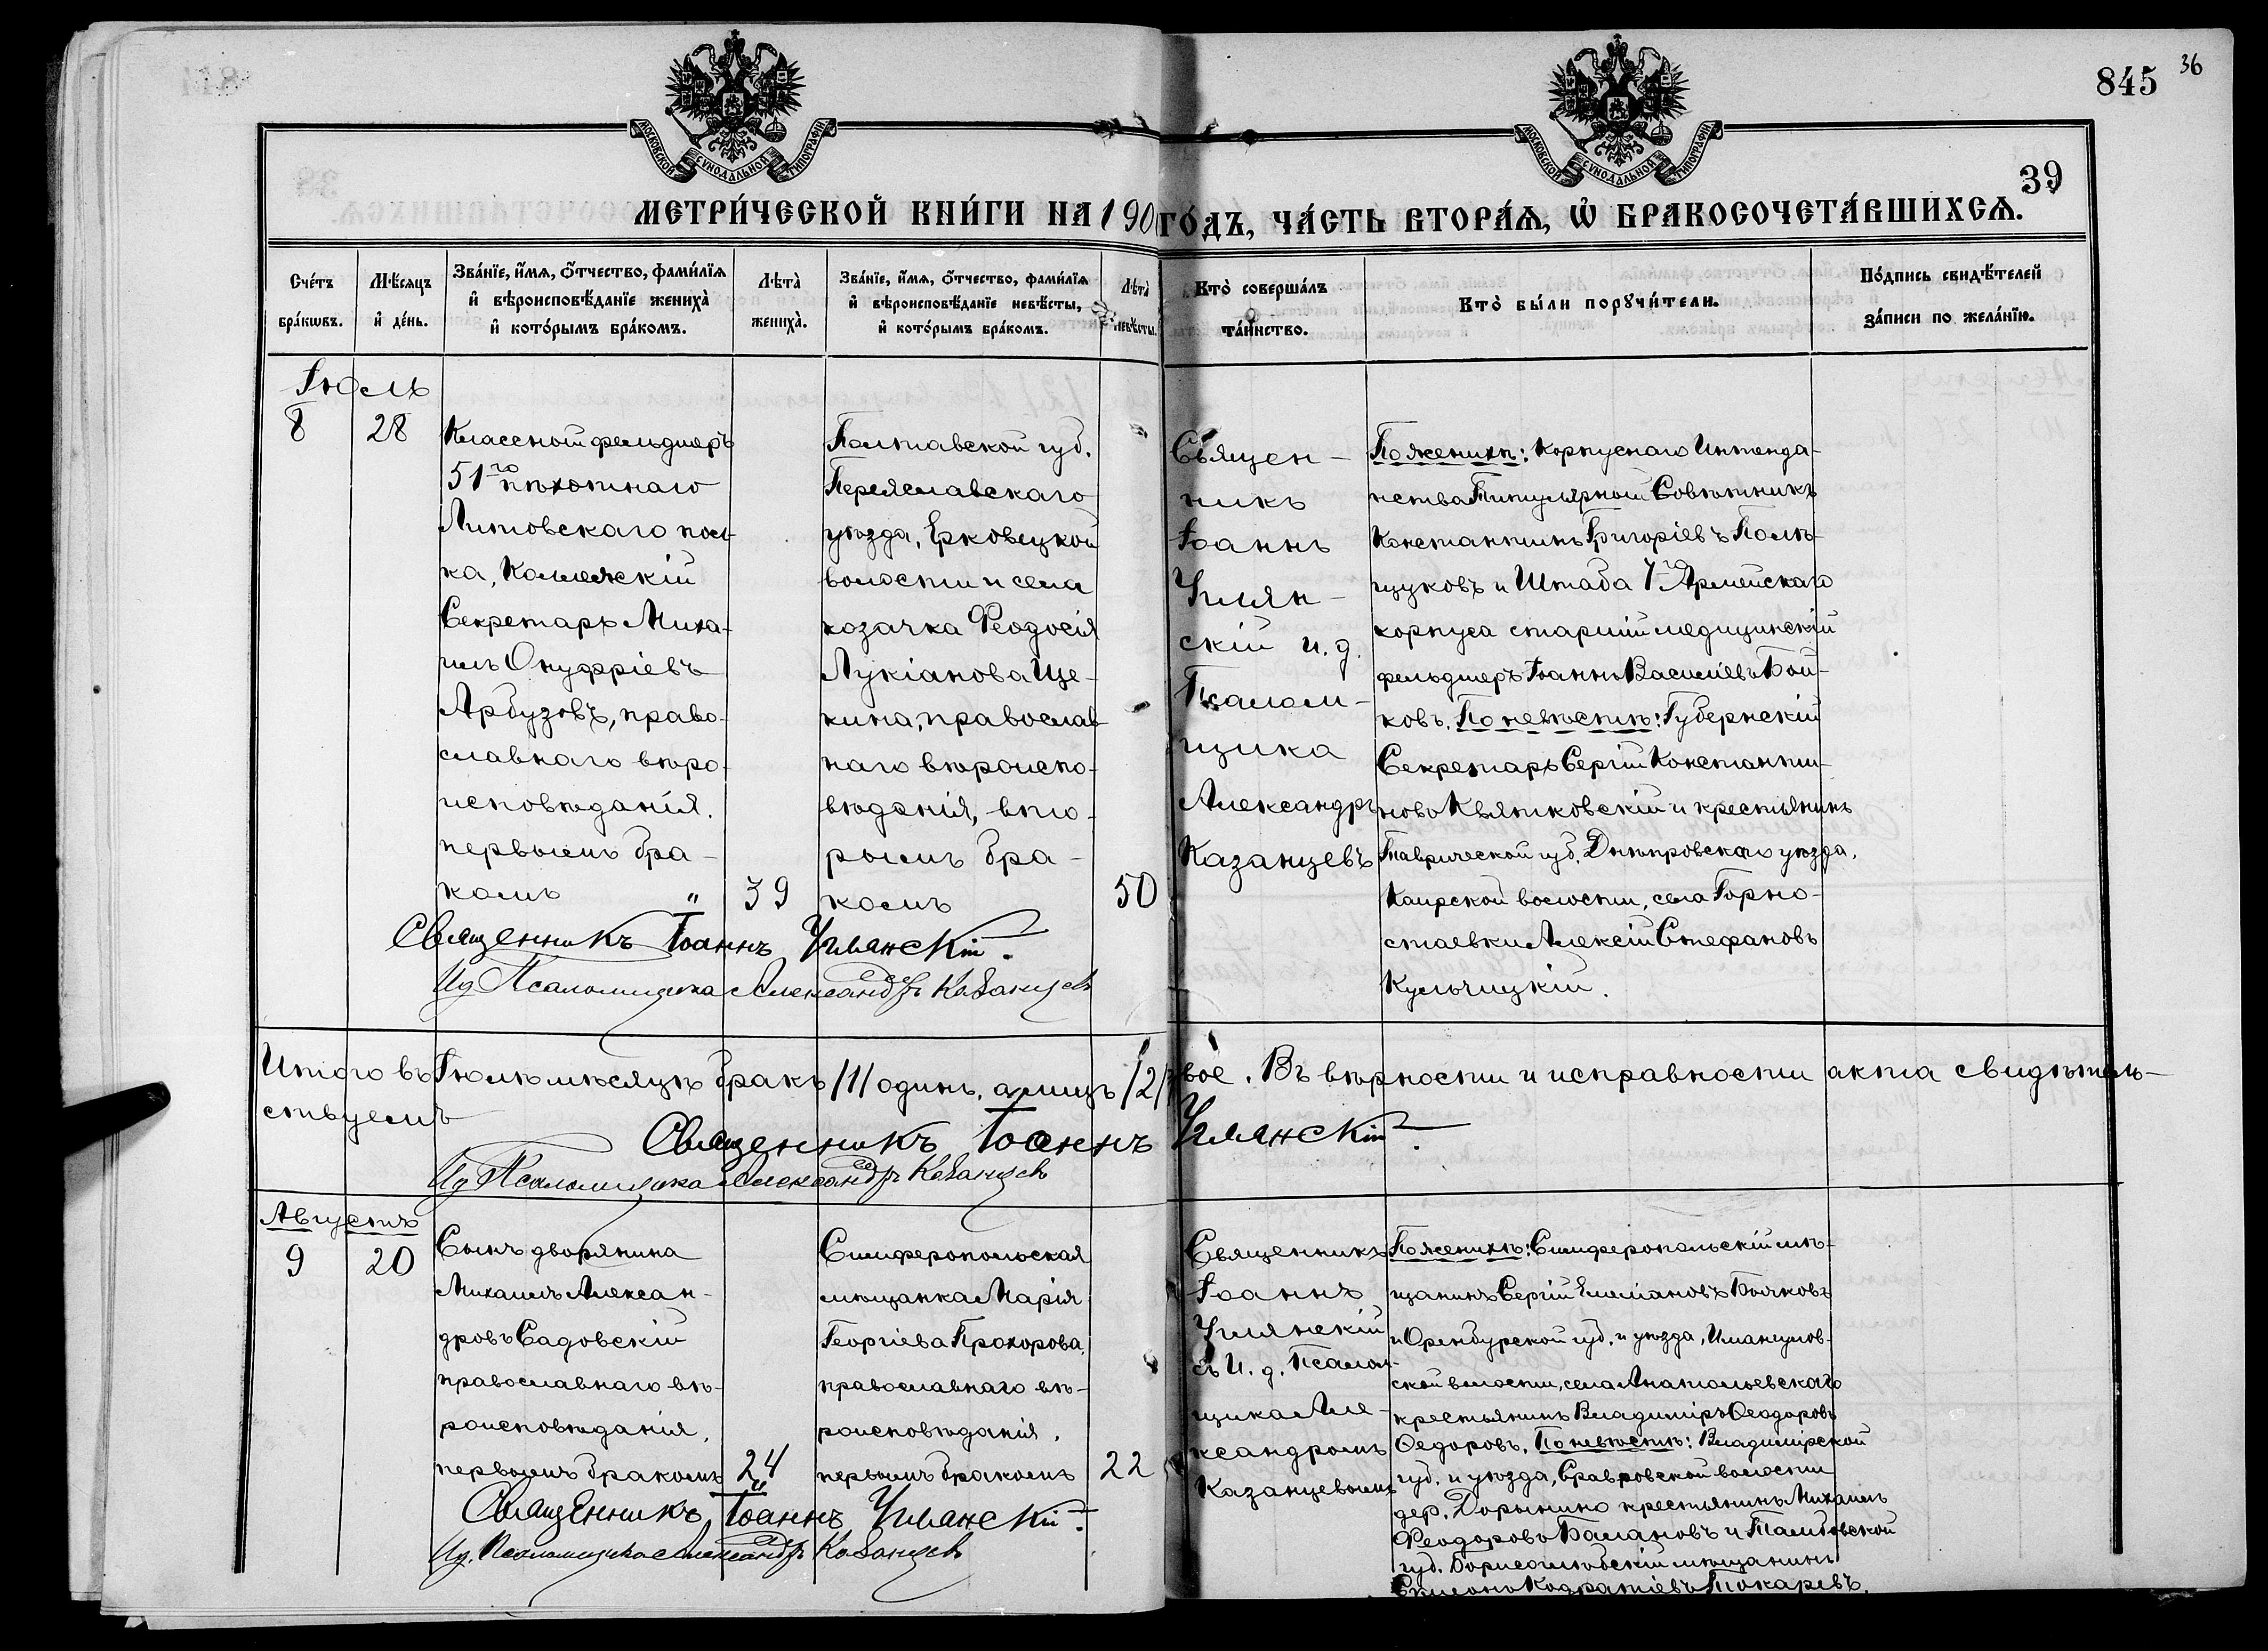 845 36
39
МОСКОВСКОЙ СѴНОДАЛЬНОЙ ТИПОГРАФІИ
МОСКОВСКОЙ СѴНОДАЛЬНОЙ ТИПОГРАФІИ
МЕТРИ́ЧЕСКОЙ КНИ́ГИ НА 190 ГО́ДЪ, ЧА́СТЬ ВТОРА́Ѧ, Ѡ҆ БРАКОСОЧЕТА́ВШИХСѦ.
Сче́тъ
бра́кѡвъ.
Мѣ́сяцъ
и҆ де́нь.
Зва́нїе, и҆́мѧ, ѻ҆́тчество, фами́лїѧ
и҆ вѣроисповѣ́данїе жениха̀
и҆ кото́рымъ бра́комъ.
Лѣта̀
жениха̀.
Зва́нїе, и҆́мѧ, ѻ҆́тчество, фами́лїѧ
и҆ вѣроисповѣ́данїе невѣ́сты,
и҆ кото́рымъ бра́комъ.
Лѣта̀
невѣ́сты.
Кто̀ соверша́лъ
та́инство.
Кто̀ бы́ли порꙋчи́тели.
По́дпись свидѣ́телей
за́писи по жела́нїю.
Іюль
8
28
Классный фельдшеръ
51го пѣхотнаго
Литовскаго пол-
ка, Коллежскій
Секретарь Миха-
илъ Онуфріевъ
Арбузовъ, право-
славнаго вѣро-
исповѣданія.
первымъ бра-
комъ "
39
Полтавской губ.
Переяславскаго
уѣзда, Ерковецкой
волости и села
козачка Феодосія
Лукіанова Ще-
кина, православ-
наго вѣроиспо-
вѣданія, вто-
рымъ бра-
комъ
50
Священ-
никъ
Іоаннъ
Умян-
скій и. д.
Псалом-
щика
Александръ
Казанцевъ
По женихѣ: Корпуснаго Интенда-
нства Титулярный Совѣтникъ
Константинъ Григоріевъ Полѣ-
щуковъ и Штаба 7го Армейскаго
корпуса старшій медицинскій
фельдшеръ Іоаннъ Василіевъ Бой-
ковъ. По невѣстѣ: Губернскій
Секретарь Сергій Константи-
новъ Квятковскій и крестьянинъ
Таврической губ. Днѣпровскаго уѣзда,
Каирской волости, села Горно-
стаевки Алексій Стефановъ
Кульчицкій.
Священникъ Іоаннъ Умянскій.
Ид Псаломщика Александръ Казанцевъ
Итого въ Іюлѣ мѣсяцѣ бракъ /1/ одинъ, а лицъ /2/ двое. Въ вѣрности и исправности акта свидѣтель-
ствуемъ
Священникъ Іоаннъ Умянскій.
Ид Псаломщика Александръ Казанцевъ
Августъ
9
20
Сынъ дворянина
Михаилъ Алексан-
дровъ Садовскій
православнаго вѣ-
роисповѣданія,
первымъ бракомъ
24
"
Симферопольская
мѣщанка Марія
Георгіева Прохорова,
православнаго вѣ-
роисповѣданія.
первымъ бракомъ
22
Священникъ
Іоаннъ
Умянскій
съ И. д. Псалом-
щика Але-
ксандромъ
Казанцевымъ
По женихѣ: Симферопольскій мѣ-
щанинъ Сергій Емиліановъ Бояковъ
и Оренбурской губ. и уѣзда, Имангулов-
ской волости, села Анатольевскаго
крестьянинъ Владиміръ Ѳеодоровъ
Ѳедоровъ. По невѣстѣ: Владимірской
губ. и уѣзда, Ставровской волости
дер. Дорынино крестьянинъ Михаилъ
Феодоровъ Балановъ и Тамбовской
губ. Борисоглѣбскій мѣщанинъ
Симеонъ Кодратіевъ Токаревъ.
Священникъ Іоаннъ Умянскій.
Ид. Псаломщика Александръ Казанцевъ